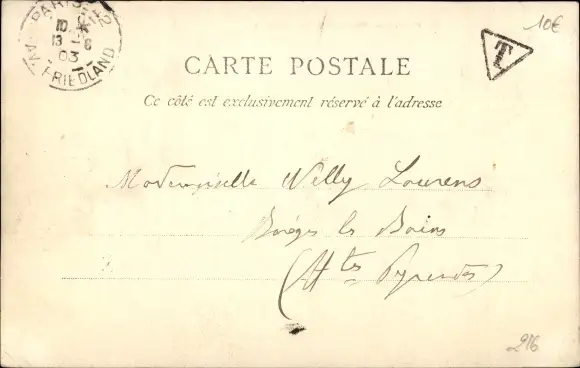 PARIS-12
10
13 - 6
03
AV. FRIEDLAND
T
10€
CARTE POSTALE
Ce côté est exclusivement réservé à l'adresse
Mademoiselle Nelly Lourens
Barèges les Bains
(Htes Pyrenées)
216